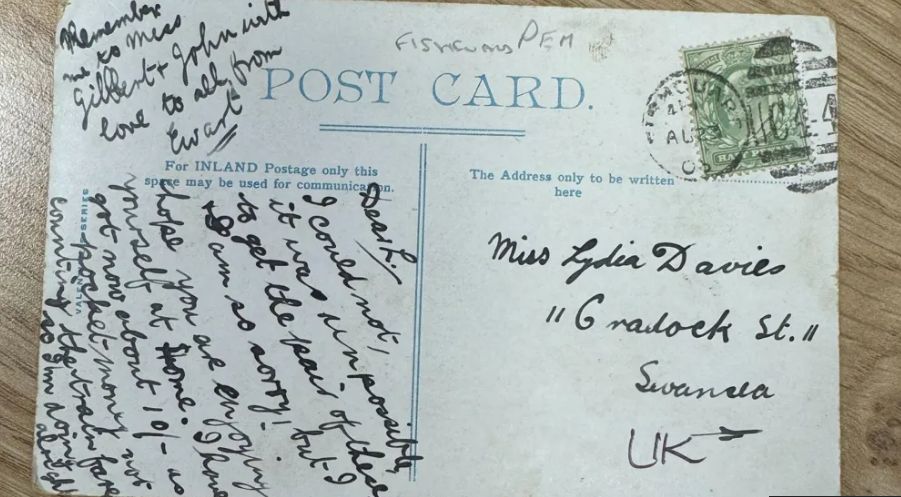 Remember
me to Miss
Gilbert & John with
love to all from
Ewart
FISHGUARD PEM
POST CARD.
For INLAND Postage only this
space may be used for communication.
The Address only to be written
here
VALENTINES SERIES
Dear L.
I could not,
it was unpossible,
to get the pair of these
& I am so sorry! but I
hope you are enjoying
yourself at home. I have
got now about 10/- as
pocket-money not
counting the train fare
so I'm doing
alright
Miss Lydia Davies
"Cradock St."
Swansea
UK
AU